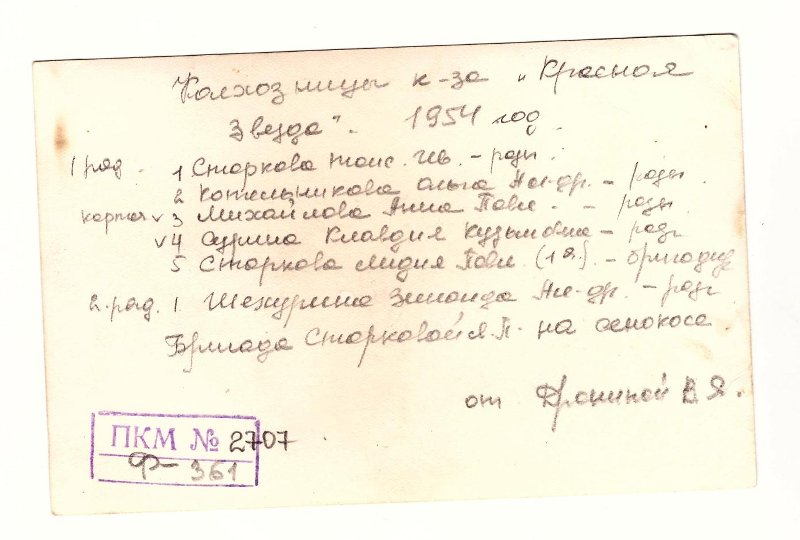 Колхозницы к-за „Красная
Звезда". 1954 год.
1 ряд. 1 Старкова Таис. Ив. – ряды.
2 Котельникова Ольга Ал-др. – ряды.
v 3 Михайлова Анна Павл. – ряды
v 4 Сурина Клавдия Кузьмовна – ряды
5 Старкова Лидия Павл. (1 я.) – бригадир
2. ряд. 1 Шехурина Зинаида Ал-др. – ряды
Бригада Старковой Л.П. на сенокосе.
от В Я.
ПКМ № 2707
Ф– 361